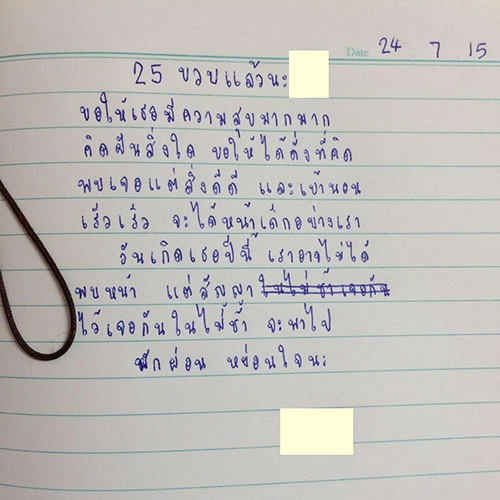 Date 24 7 15
25 ขวบแล้วนะ
ขอให้เธอมีความสุขมากมาก
คิดฝันสิ่งใด ขอให้ได้ดั่งที่คิด
พบเจอแต่สิ่งดีดี และเข้านอน
เร็วเร็ว จะได้หน้าเด็กอย่างเรา
วันเกิดเธอปีนี้ เราอาจไม่ได้
พบหน้า แต่สัญญา ในไม่ช้าเจอกัน
ไว้เจอกันในไม่ช้า จะพาไป
พักผ่อน หย่อนใจนะ